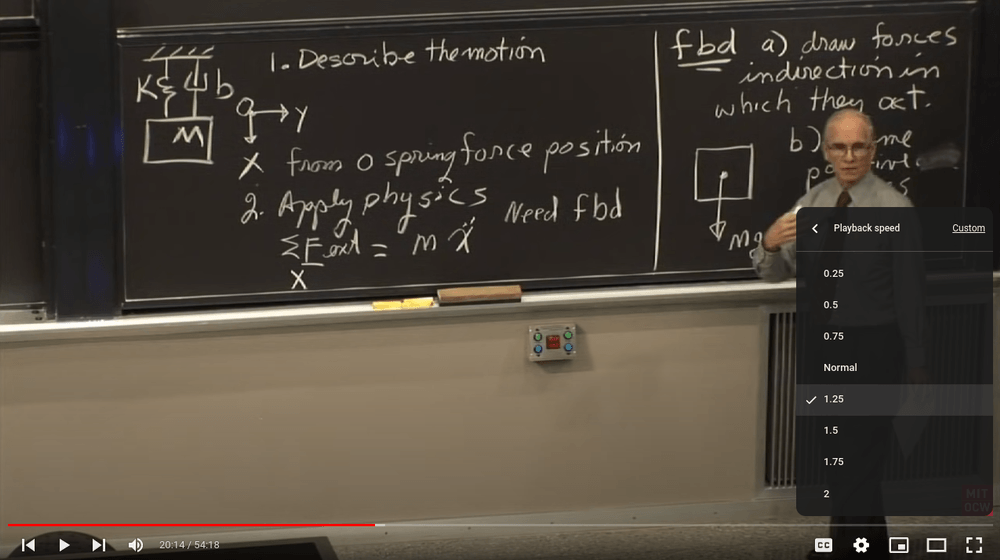 1. Describe the motion
K b
M
O → Y
X
from O spring force position
2. Apply physics Need fbd
ΣF ext = m ẍ
X
fbd a) draw forces
in direction in
which they act.
b)
Playback speed Custom
0.25
0.5
0.75
Normal
1.25
1.5
1.75
2
MIT
OCW
20:14 / 54:18
CC